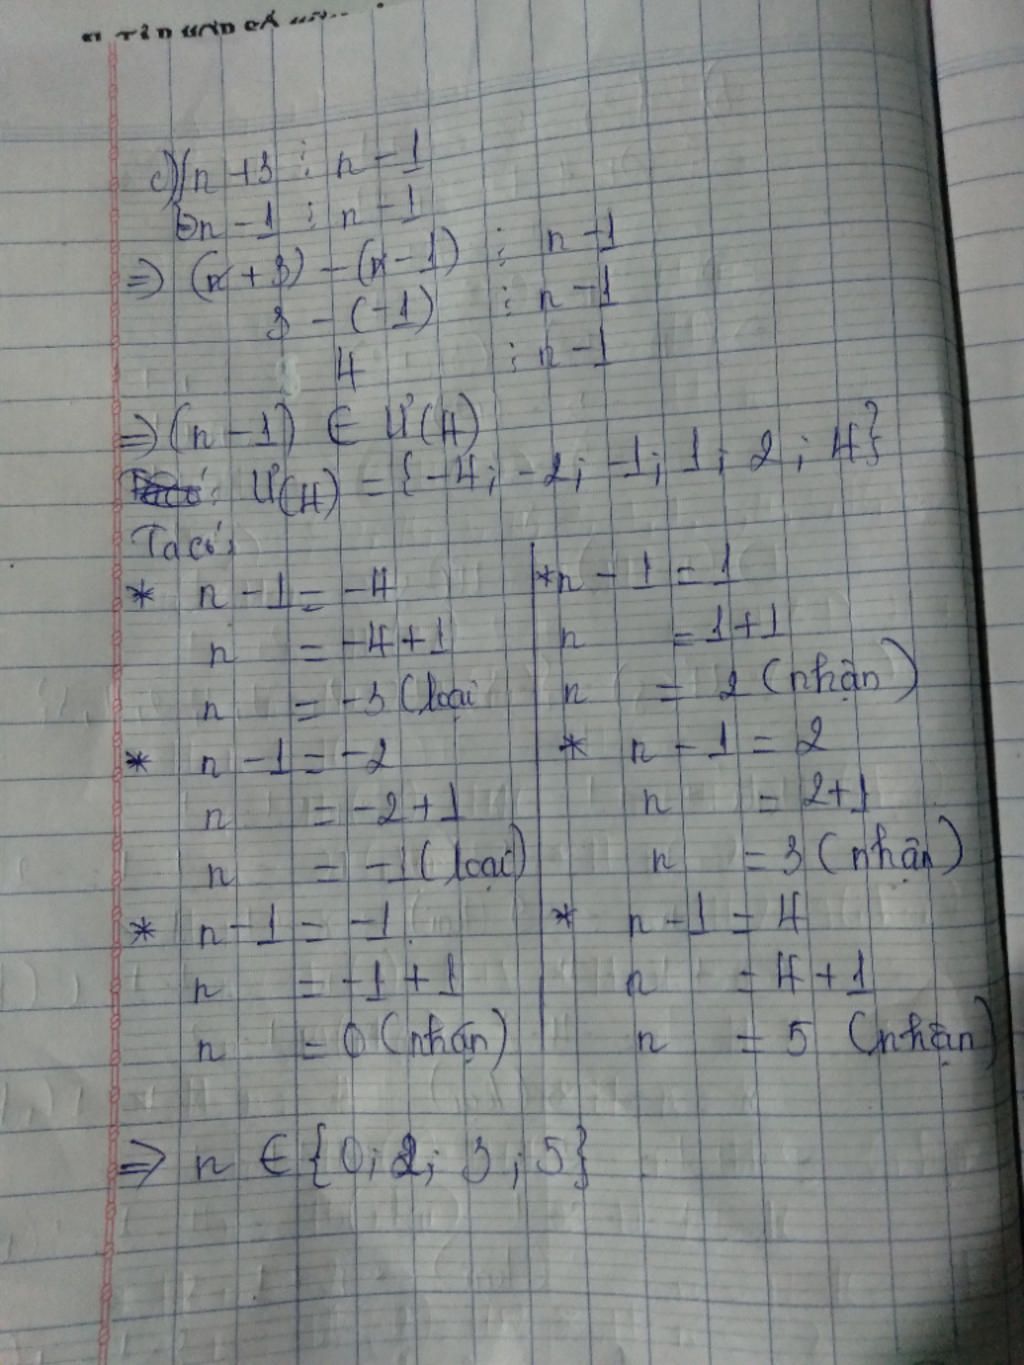 c) n + 3 ⋮ n - 1
n - 1 ⋮ n - 1
⇒ (n + 3) - (n - 1) ⋮ n - 1
3 - (-1) ⋮ n - 1
4 ⋮ n - 1
⇒ (n - 1) ∈ Ư(4)
Ư(4) = {-4; -2; -1; 1; 2; 4}
Ta có:
* n - 1 = -4
n = -4 + 1
n = -3 (loại
* n - 1 = -2
n = -2 + 1
n = -1 (loại)
* n - 1 = -1
n = -1 + 1
n = 0 (nhận)
* n - 1 = 1
n = 1 + 1
n = 2 (nhận)
* n - 1 = 2
n = 2 + 1
n = 3 (nhận)
* n - 1 = 4
n = 4 + 1
n = 5 (nhận)
⇒ n ∈ {0; 2; 3; 5}